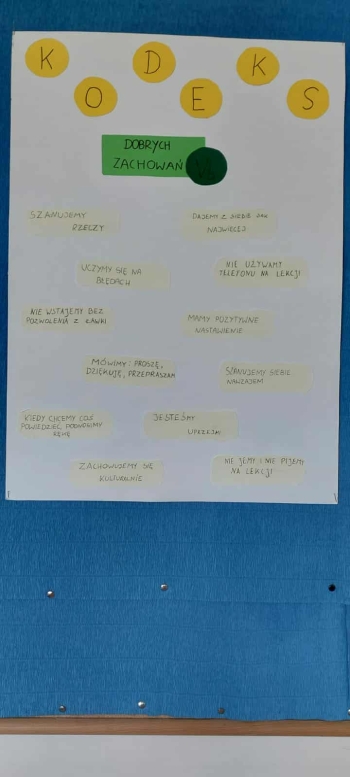 KODEKS
DOBRYCH
ZACHOWAŃ
SZANUJEMY
RZECZY
DAJEMY Z SIEBIE JAK
NAJWIĘCEJ
UCZYMY SIĘ NA
BŁĘDACH
NIE UŻYWAMY
TELEFONU NA LEKCJI
NIE WSTAJEMY BEZ
POZWOLENIA Z ŁAWKI
MAMY POZYTYWNE
NASTAWIENIE
MÓWIMY: PROSZĘ,
DZIĘKUJĘ, PRZEPRASZAM
SZANUJEMY SIEBIE
NAWZAJEM
KIEDY CHCEMY COŚ
POWIEDZIEĆ, PODNOSIMY
RĘKĘ
JESTEŚMY
UPRZEJMI
ZACHOWUJEMY SIĘ
KULTURALNIE
NIE JEMY I NIE PIJEMY
NA LEKCJI